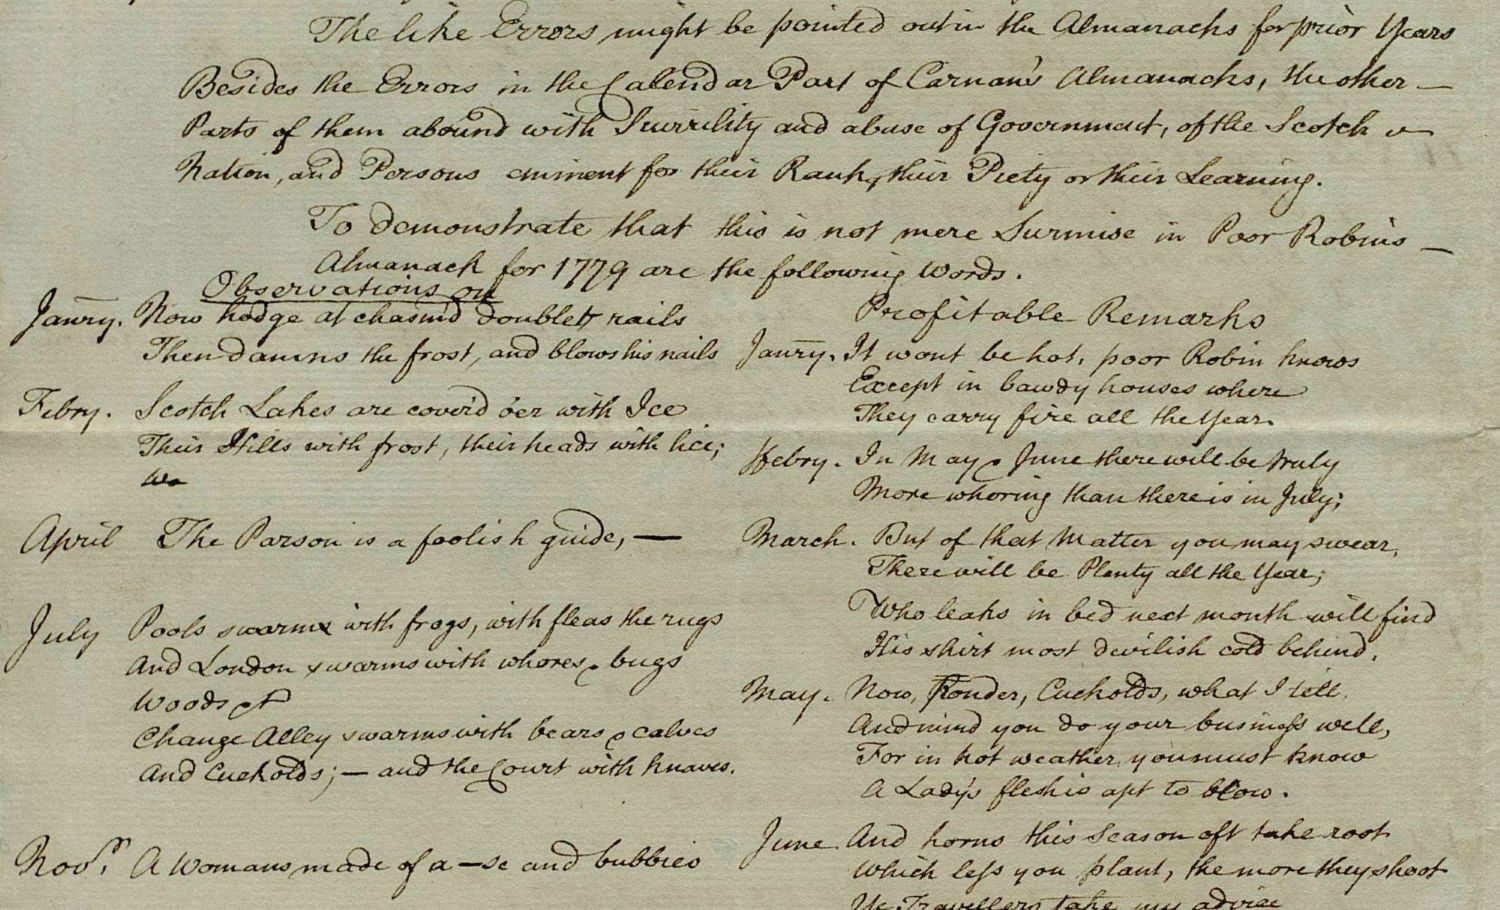 The like Errors might be pointed out in the Almanacks for prior Years
Besides the Errors in the Calendar Part of Carnan's Almanacks, the other —
Parts of them abound with Scurrility and abuse of Government, of the Scotch
Nation, and Persons eminent for their Rank, their Piety or their Learning.
To demonstrate that this is not mere Surmise in Poor Robins —
Almanack for 1779 are the following Words.
Observations on
Janry. Now hodge at chasm'd doublets rails
Then damns the frost, and blows his nails
Febry. Scotch Lakes are cover'd o'er with Ice
Their Hills with frost, their heads with lice;
April The Parson is a foolish guide, —
July Pools swarm with frogs, with fleas the rugs
And London swarms with whores & bugs
Woods &c
Change Alley swarms with bears & calves
And Cuckolds; — and the Court with knaves.
Novr. A Womans made of a—se and bubbies
Profitable Remarks
Janry. It wont be hot, poor Robin knows
Except in bawdy houses where
They carry fire all the Year.
Febry. In May & June there will be truly
More whoring than there is in July;
March. But of that Matter you may swear,
There will be Plenty all the Year;
Who leaks in bed next month will find
His shirt most devilish cold behind.
May. Now, Cuckolds, what I tell.
And mind you do your business well,
For in hot weather, you must know
A Lady's flesh is apt to blow.
June And horns this Season oft take root
Which less you plant, the more they shoot
Ye Travellers take my advice